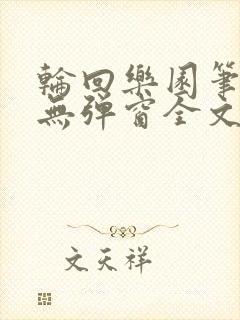 輪回樂園筆
無彈窗全文
文天祥